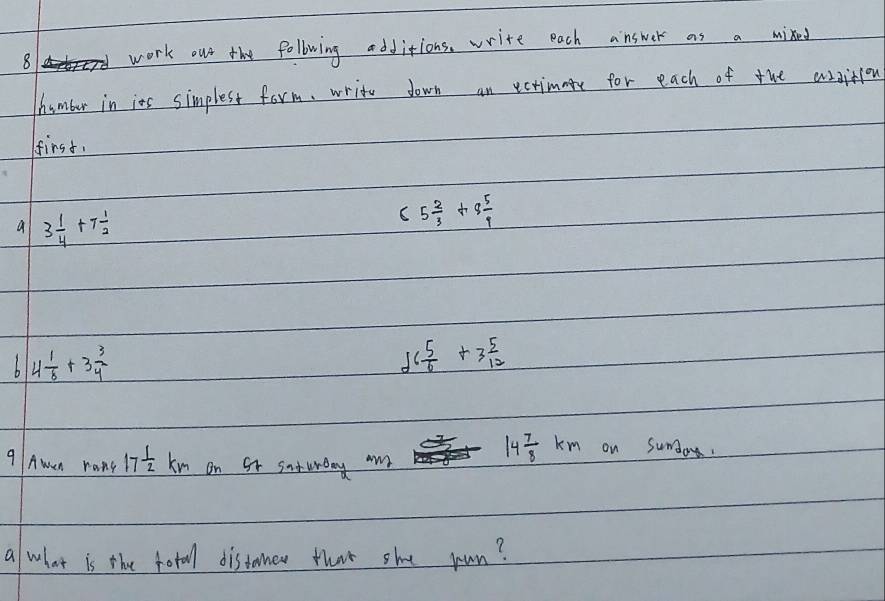 8 work out the follbwing additions. write each answer as a mixed
humber in its simplest form. write down an ectimate for each of the addition
first.
a 3 1/4 + 7 1/2
c 5 2/3 + 8 5/9
b 4 1/8 + 3 3/4
d 6 5/6 + 3 5/12
9 Awen rans 17 1/2 km on saturday and 14 7/8 km on sunday.
a what is the total distance that she run?